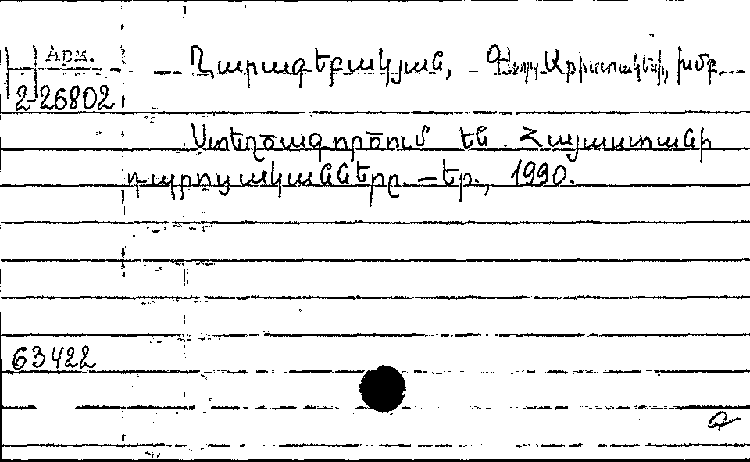 Арм.
Ղարագեբակյան, Գևորգ Արիստակեսի, խմբ.
2-26802
Ստեղծագործում են Հայաստանի
դպրոցականները. – Եր., 1990.
63422